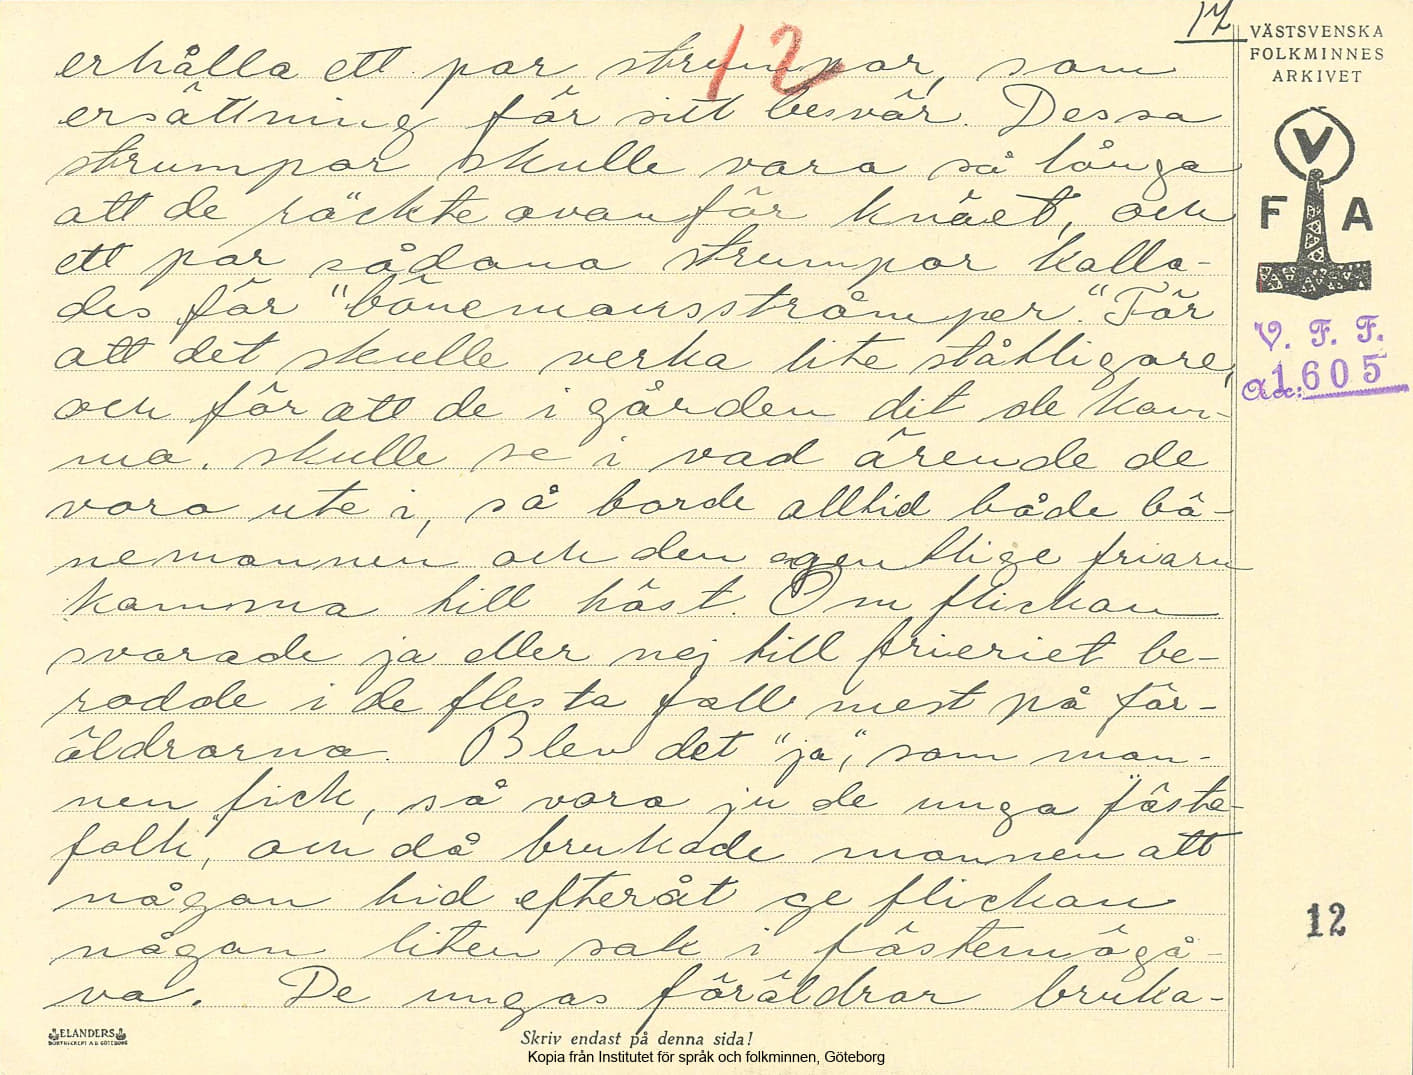 12
12
VÄSTSVENSKA
FOLKMINNES
ARKIVET
V
F A
V. F. F.
1605
erhålla ett par strumpor, som
ersättning för sitt besvär. Dessa
strumpor skulle vara så långa
att de räckte ovanför knäet, och
ett par sådana strumpor kalla-
des för "bönemansströmper." För
att det skulle verka lite ståtligare,
och för att de i gården dit de kom-
ma, skulle se i vad ärende de
voro ute i, så borde alltid både bö-
nemannen och den egentlige friarn
komma till häst. Om flickan
svarade ja eller nej till frieriet be-
rodde i de flesta fall mest på för-
äldrarna. Blev det "ja", som man-
nen fick, så voro ju de unga "fäste-
folk", och då brukade mannen att
någon tid efteråt ge flickan
någon liten sak i fästemögå-
va. De ungas föräldrar bruka-
12
ELANDERS
BOKTRYCKERI A.B. GÖTEBORG
Skriv endast på denna sida!
Kopia från Institutet för språk och folkminnen, Göteborg